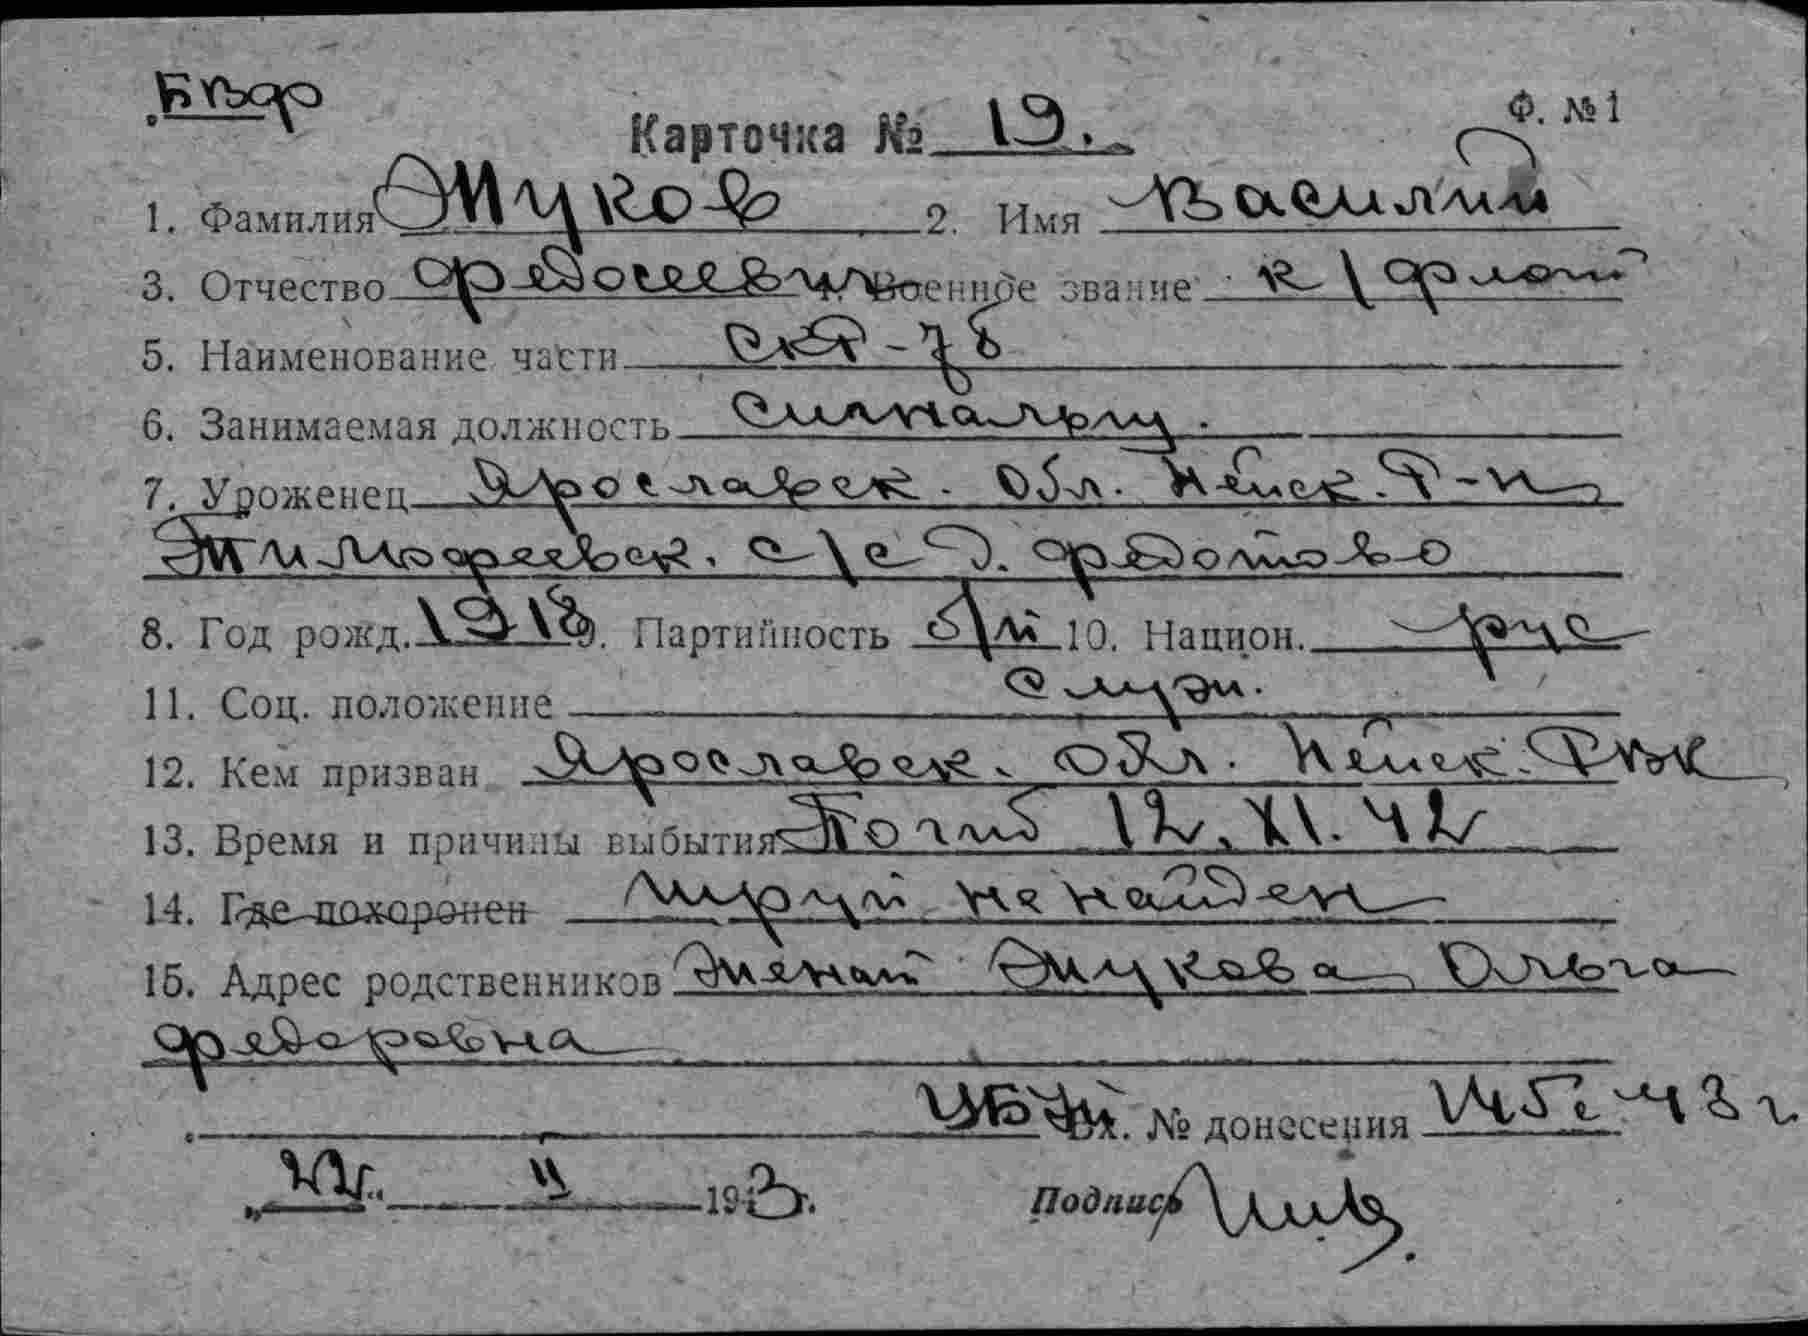 БВФ
Ф. №1
Карточка № 19.
1. Фамилия Жуков 2. Имя Василий
3. Отчество Федосеевич 4. Военное звание к/флот
5. Наименование части СКР-76
6. Занимаемая должность сигнальщ.
7. Уроженец Ярославск. обл. Нейск. р-н
Тимофеевск. с/с д. Федотово
8. Год рожд. 1918 9. Партийность б/п 10. Национ. рус
11. Соц. положение служ.
12. Кем призван Ярославск. обл. Нейск. РВК
13. Время и причины выбытия Погиб 12.XI.42
14. Где похоронен труп не найден
15. Адрес родственников Жена Жукова Ольга
Федоровна
Вх. № донесения 43 г
„22“ II 1943г. Подпись